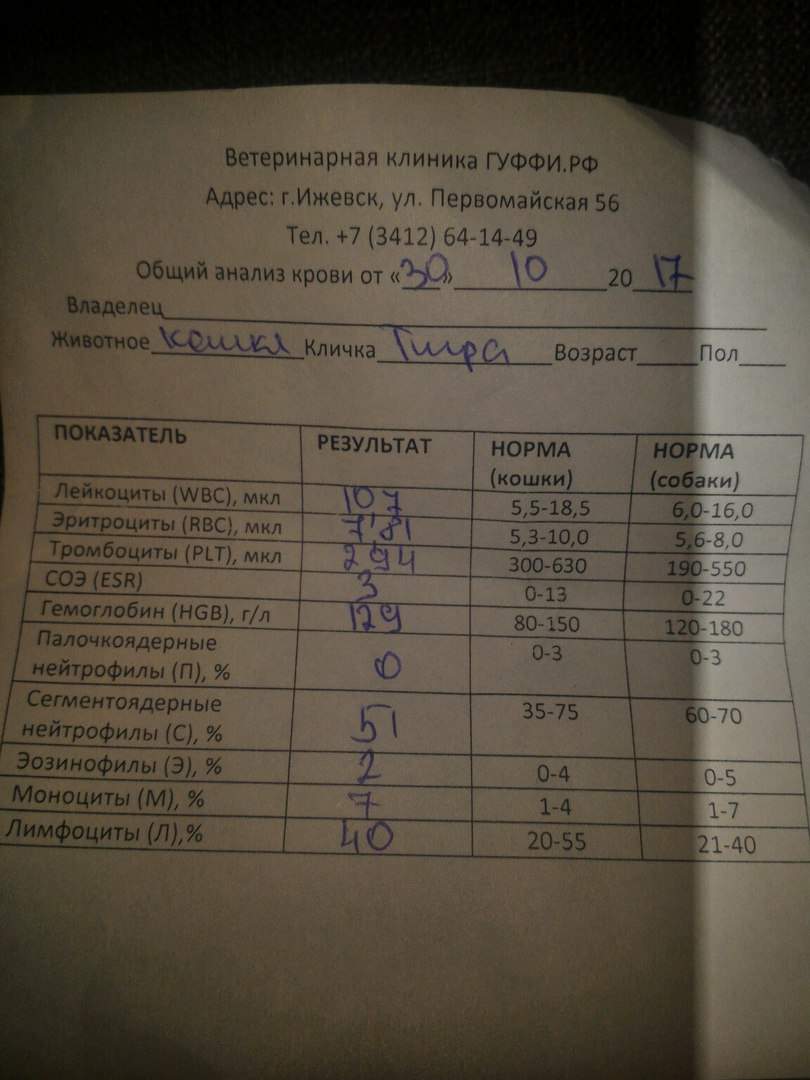 Ветеринарная клиника ГУФФИ.РФ
Адрес: г.Ижевск, ул. Первомайская 56
Тел. +7 (3412) 64-14-49
Общий анализ крови от «30» 10 2017
Владелец
Животное кошка Кличка Тигра Возраст Пол
ПОКАЗАТЕЛЬ РЕЗУЛЬТАТ НОРМА (кошки) НОРМА (собаки)
Лейкоциты (WBC), мкл 107 5,5-18,5 6,0-16,0
Эритроциты (RBC), мкл 7,81 5,3-10,0 5,6-8,0
Тромбоциты (PLT), мкл 294 300-630 190-550
СОЭ (ESR) 3 0-13 0-22
Гемоглобин (HGB), г/л 129 80-150 120-180
Палочкоядерные нейтрофилы (П), % 0 0-3 0-3
Сегментоядерные нейтрофилы (С), % 51 35-75 60-70
Эозинофилы (Э), % 2 0-4 0-5
Моноциты (М), % 7 1-4 1-7
Лимфоциты (Л),% 40 20-55 21-40